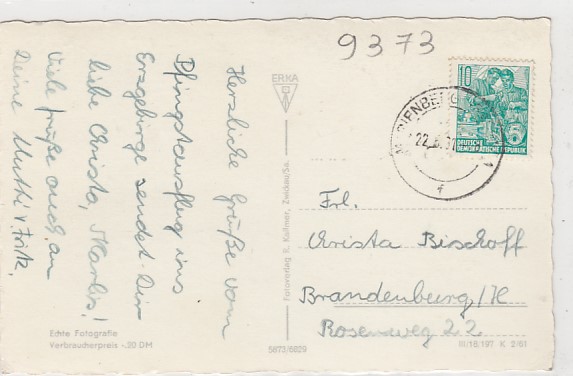 9373
Herzliche Grüße vom
Pfingstausflug ins
Erzgebirge sendet Dir
liebe Christa, Marlis!
Viele Grüße auch an
Deine Mutti u. Fritz.
ERKA
10
DEUTSCHE
DEMOKRATISCHE REPUBLIK
MARIENBERG
22.5.
f
Frl.
Christa Bischoff
Brandenburg/H
Rosenweg 22
Fotoverlag R. Kallmer, Zwickau/Sa.
Echte Fotografie
Verbraucherpreis -.20 DM
5673/6829
III/18/197 K 2/61